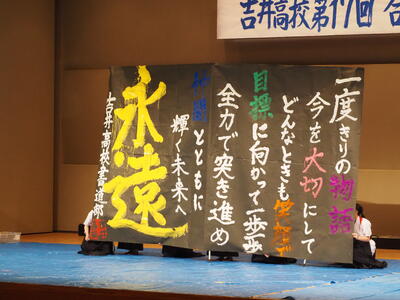 吉井高校第17回 合
一度きりの物語
今を大切にして
どんなときも笑顔で
目標に向かって一歩一歩
全力で突き進め
仲間とともに
輝く未来へ
永遠
吉井高校書道部